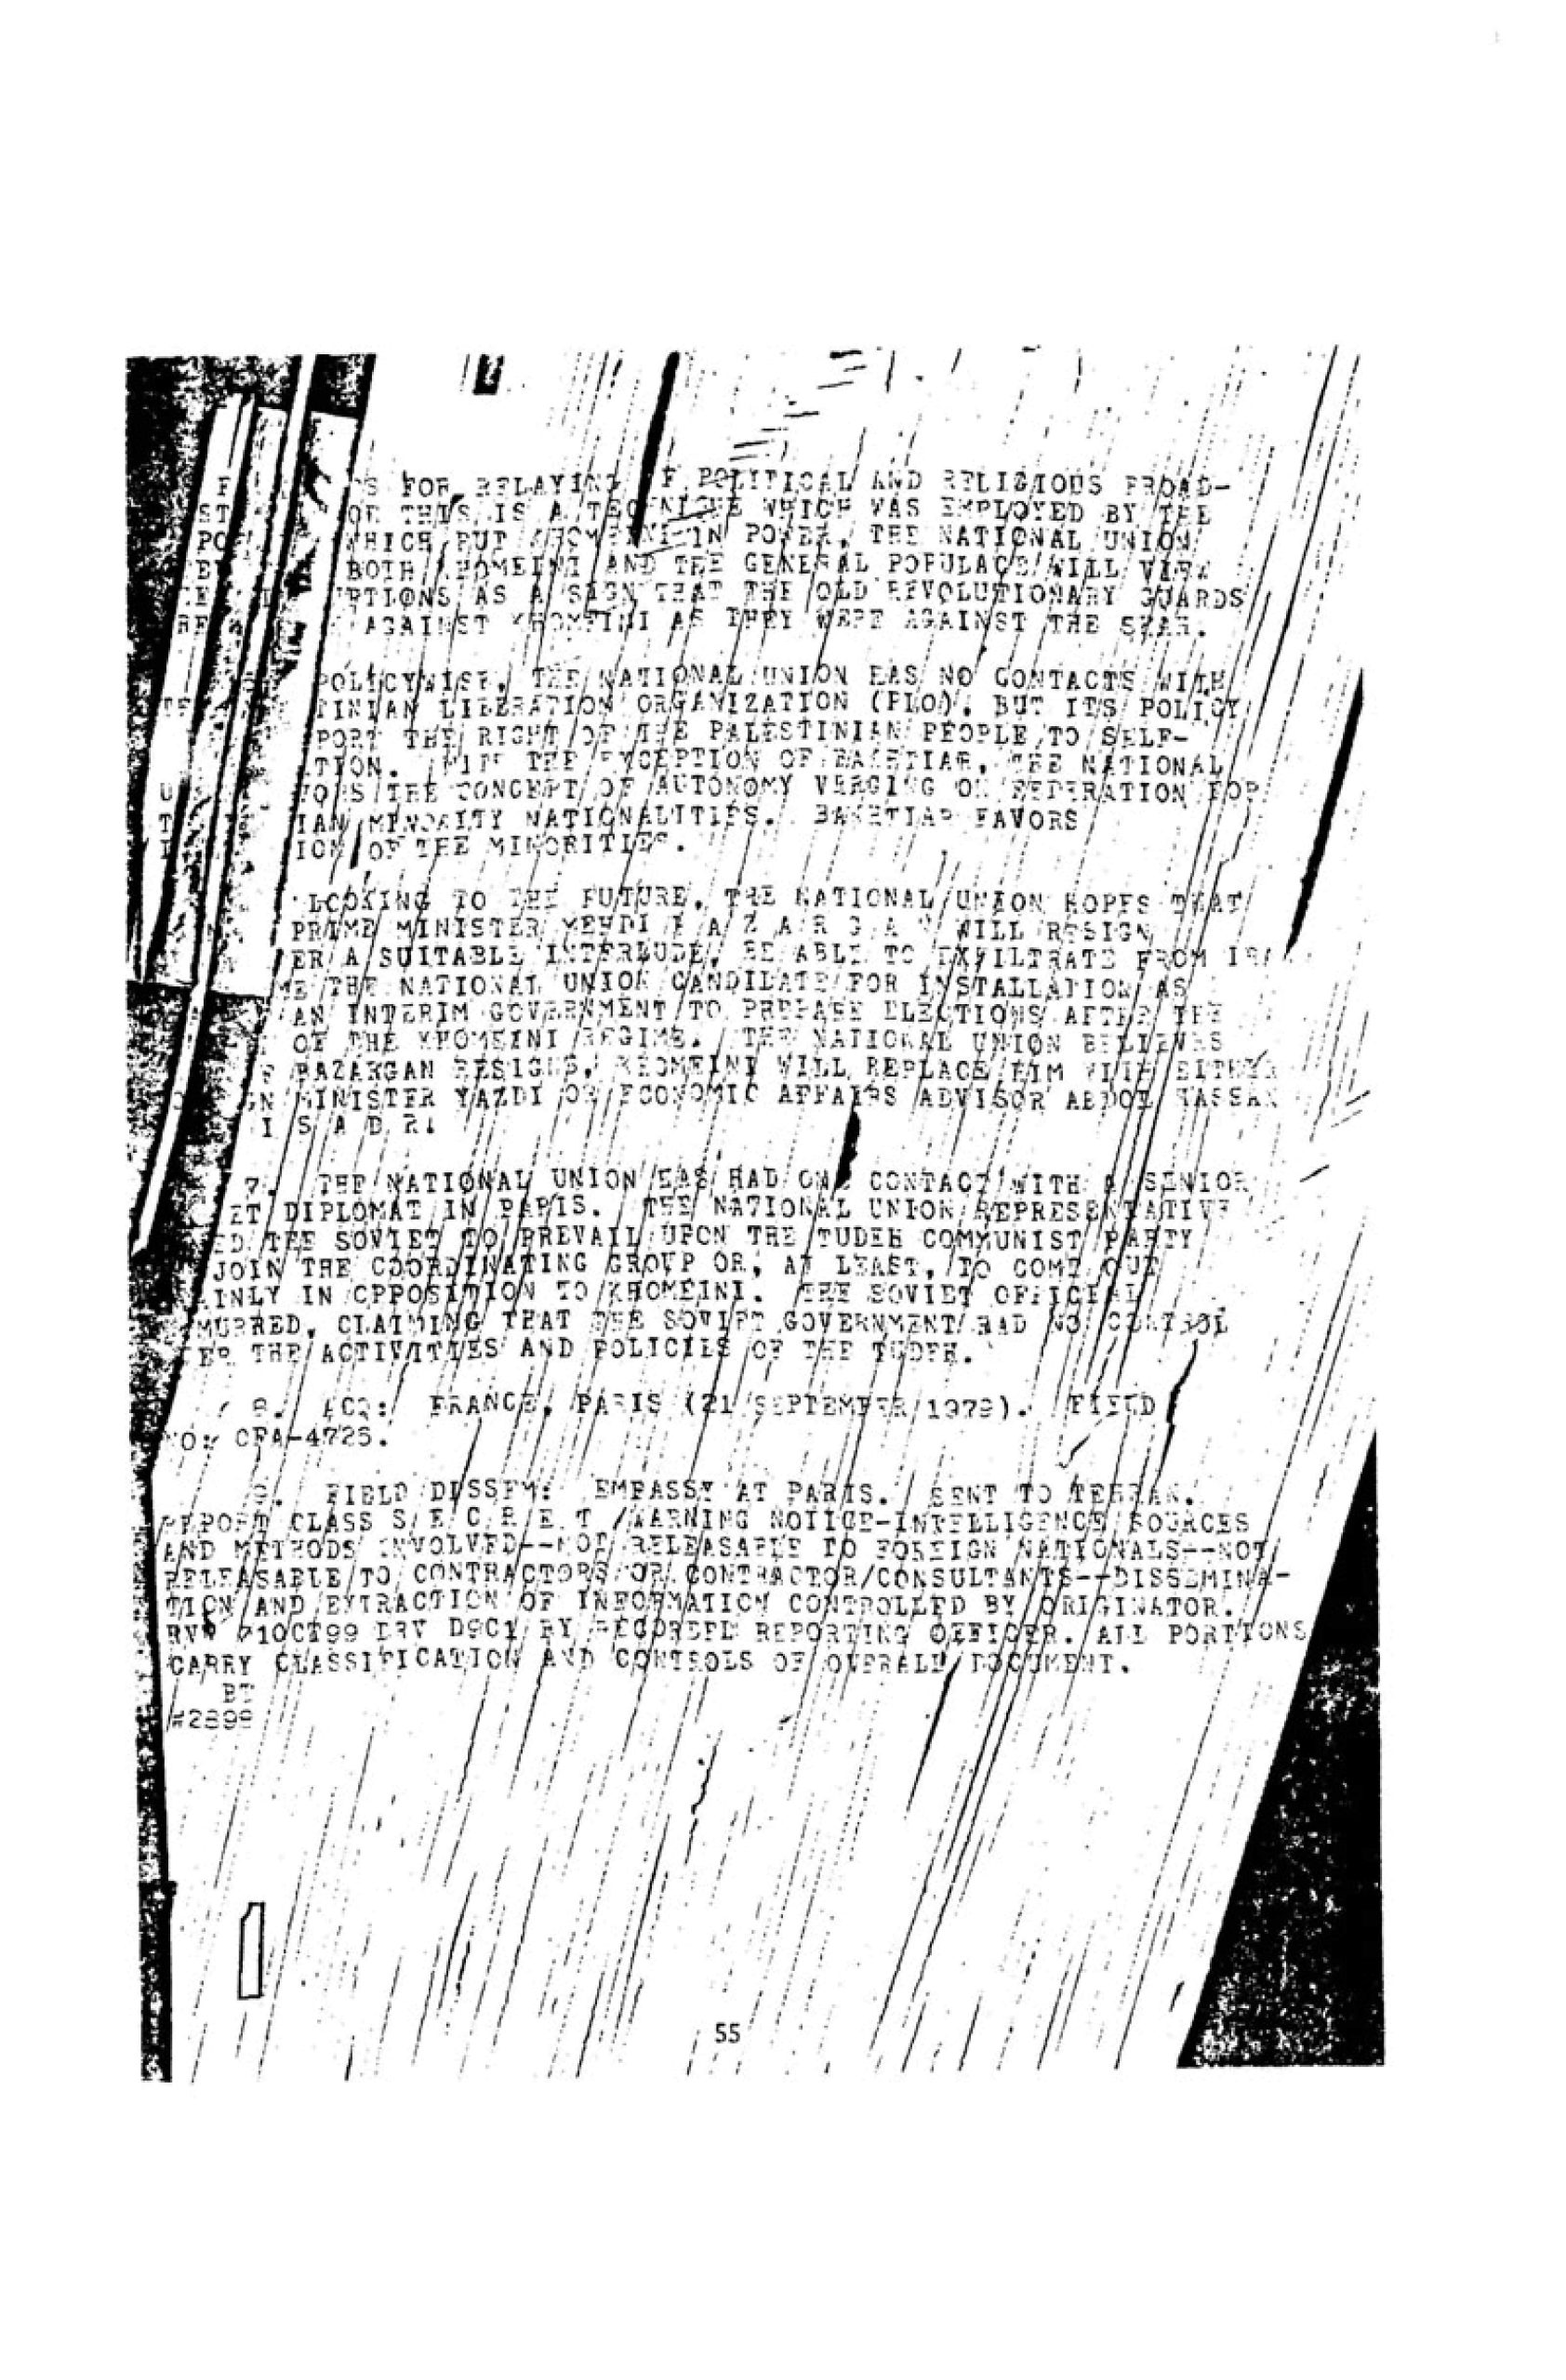 FOR RELAYING POLITICAL AND RELIGIOUS BROAD-
OF THIS IS A TECHNIQUE WHICH WAS EMPLOYED BY THE
WHICH PUT KHOMEINI IN POWER. THE NATIONAL UNION
BOTH KHOMEINI AND THE GENERAL POPULACE WILL VIEW
AS A SIGN THAT THE OLD REVOLUTIONARY GUARDS
AGAINST KHOMEINI AS THEY WERE AGAINST THE SHAH.
POLICYWISE, THE NATIONAL UNION HAS NO CONTACTS WITH
TINIAN LIBERATION ORGANIZATION (PLO), BUT ITS POLICY
PORT THE RIGHT OF THE PALESTINIAN PEOPLE TO SELF-
ATION. WITH THE EXCEPTION OF BAKHTIAR, THE NATIONAL
VORS THE CONCEPT OF AUTONOMY VERGING ON FEDERATION FOR
IAN MINORITY NATIONALITIES. BAKHTIAR FAVORS
ION OF THE MINORITIES.
LOOKING TO THE FUTURE, THE NATIONAL UNION HOPES THAT
PRIME MINISTER MEHDI B A Z A R G A N WILL RESIGN
ER A SUITABLE INTERLUDE, BE ABLE TO EXFILTRATE FROM
ME THE NATIONAL UNION CANDIDATE FOR INSTALLATION AS
AN INTERIM GOVERNMENT TO PREPARE ELECTIONS AFTER THE
OF THE KHOMEINI REGIME. THE NATIONAL UNION BELIEVES
F BAZARGAN RESIGNS, KHOMEINI WILL REPLACE HIM WITH EITHER
GN MINISTER YAZDI OR ECONOMIC AFFAIRS ADVISOR ABDOL HASSAN
I S A D R.
7. THE NATIONAL UNION HAS HAD ONE CONTACT WITH A SENIOR
ET DIPLOMAT IN PARIS. THE NATIONAL UNION REPRESENTATIVE
ED THE SOVIET TO PREVAIL UPON THE TUDEH COMMUNIST PARTY
JOIN THE COORDINATING GROUP OR, AT LEAST, TO COME OUT
AINLY IN OPPOSITION TO KHOMEINI. THE SOVIET OFFICIAL
MURRED, CLAIMING THAT THE SOVIET GOVERNMENT HAD NO CONTROL
ER THE ACTIVITIES AND POLICIES OF THE TUDEH.
8. ACQ: FRANCE, PARIS (21 SEPTEMBER 1979). FIELD
NO: CFA-4725.
9. FIELD DISSEM: EMBASSY AT PARIS. SENT TO TEHRAN.
REPORT CLASS S E C R E T WARNING NOTICE-INTELLIGENCE SOURCES
AND METHODS INVOLVED--NOT RELEASABLE TO FOREIGN NATIONALS--NOT
RELEASABLE TO CONTRACTORS OR CONTRACTOR/CONSULTANTS--DISSEMINA-
TION AND EXTRACTION OF INFORMATION CONTROLLED BY ORIGINATOR.
RVW 21OCT99 DRV D9C1 BY RECORDED REPORTING OFFICER. ALL PORTIONS
CARRY CLASSIFICATION AND CONTROLS OF OVERALL DOCUMENT.
BT
#2898
55